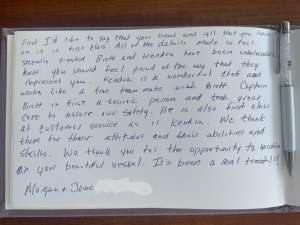 First I'd like to say that your boat and all that you have
on it is first class. All of the details made us feel
specially treated. Brett and Kendra have been unbelievable
hosts. You should feel proud of the way that they
represent you. Kendra is a wonderful chef and
works like a true team mate with Brett. Captain
Brett is first a terrific person and took great
care to assure our safety. He is also first class
at customer service as is Kendra. We thank
them for their attitudes and their abilities and
skills. We thank you for the opportunity to vacation
on your beautiful vessel. It's been a real treat!!!
Morgan + Jane